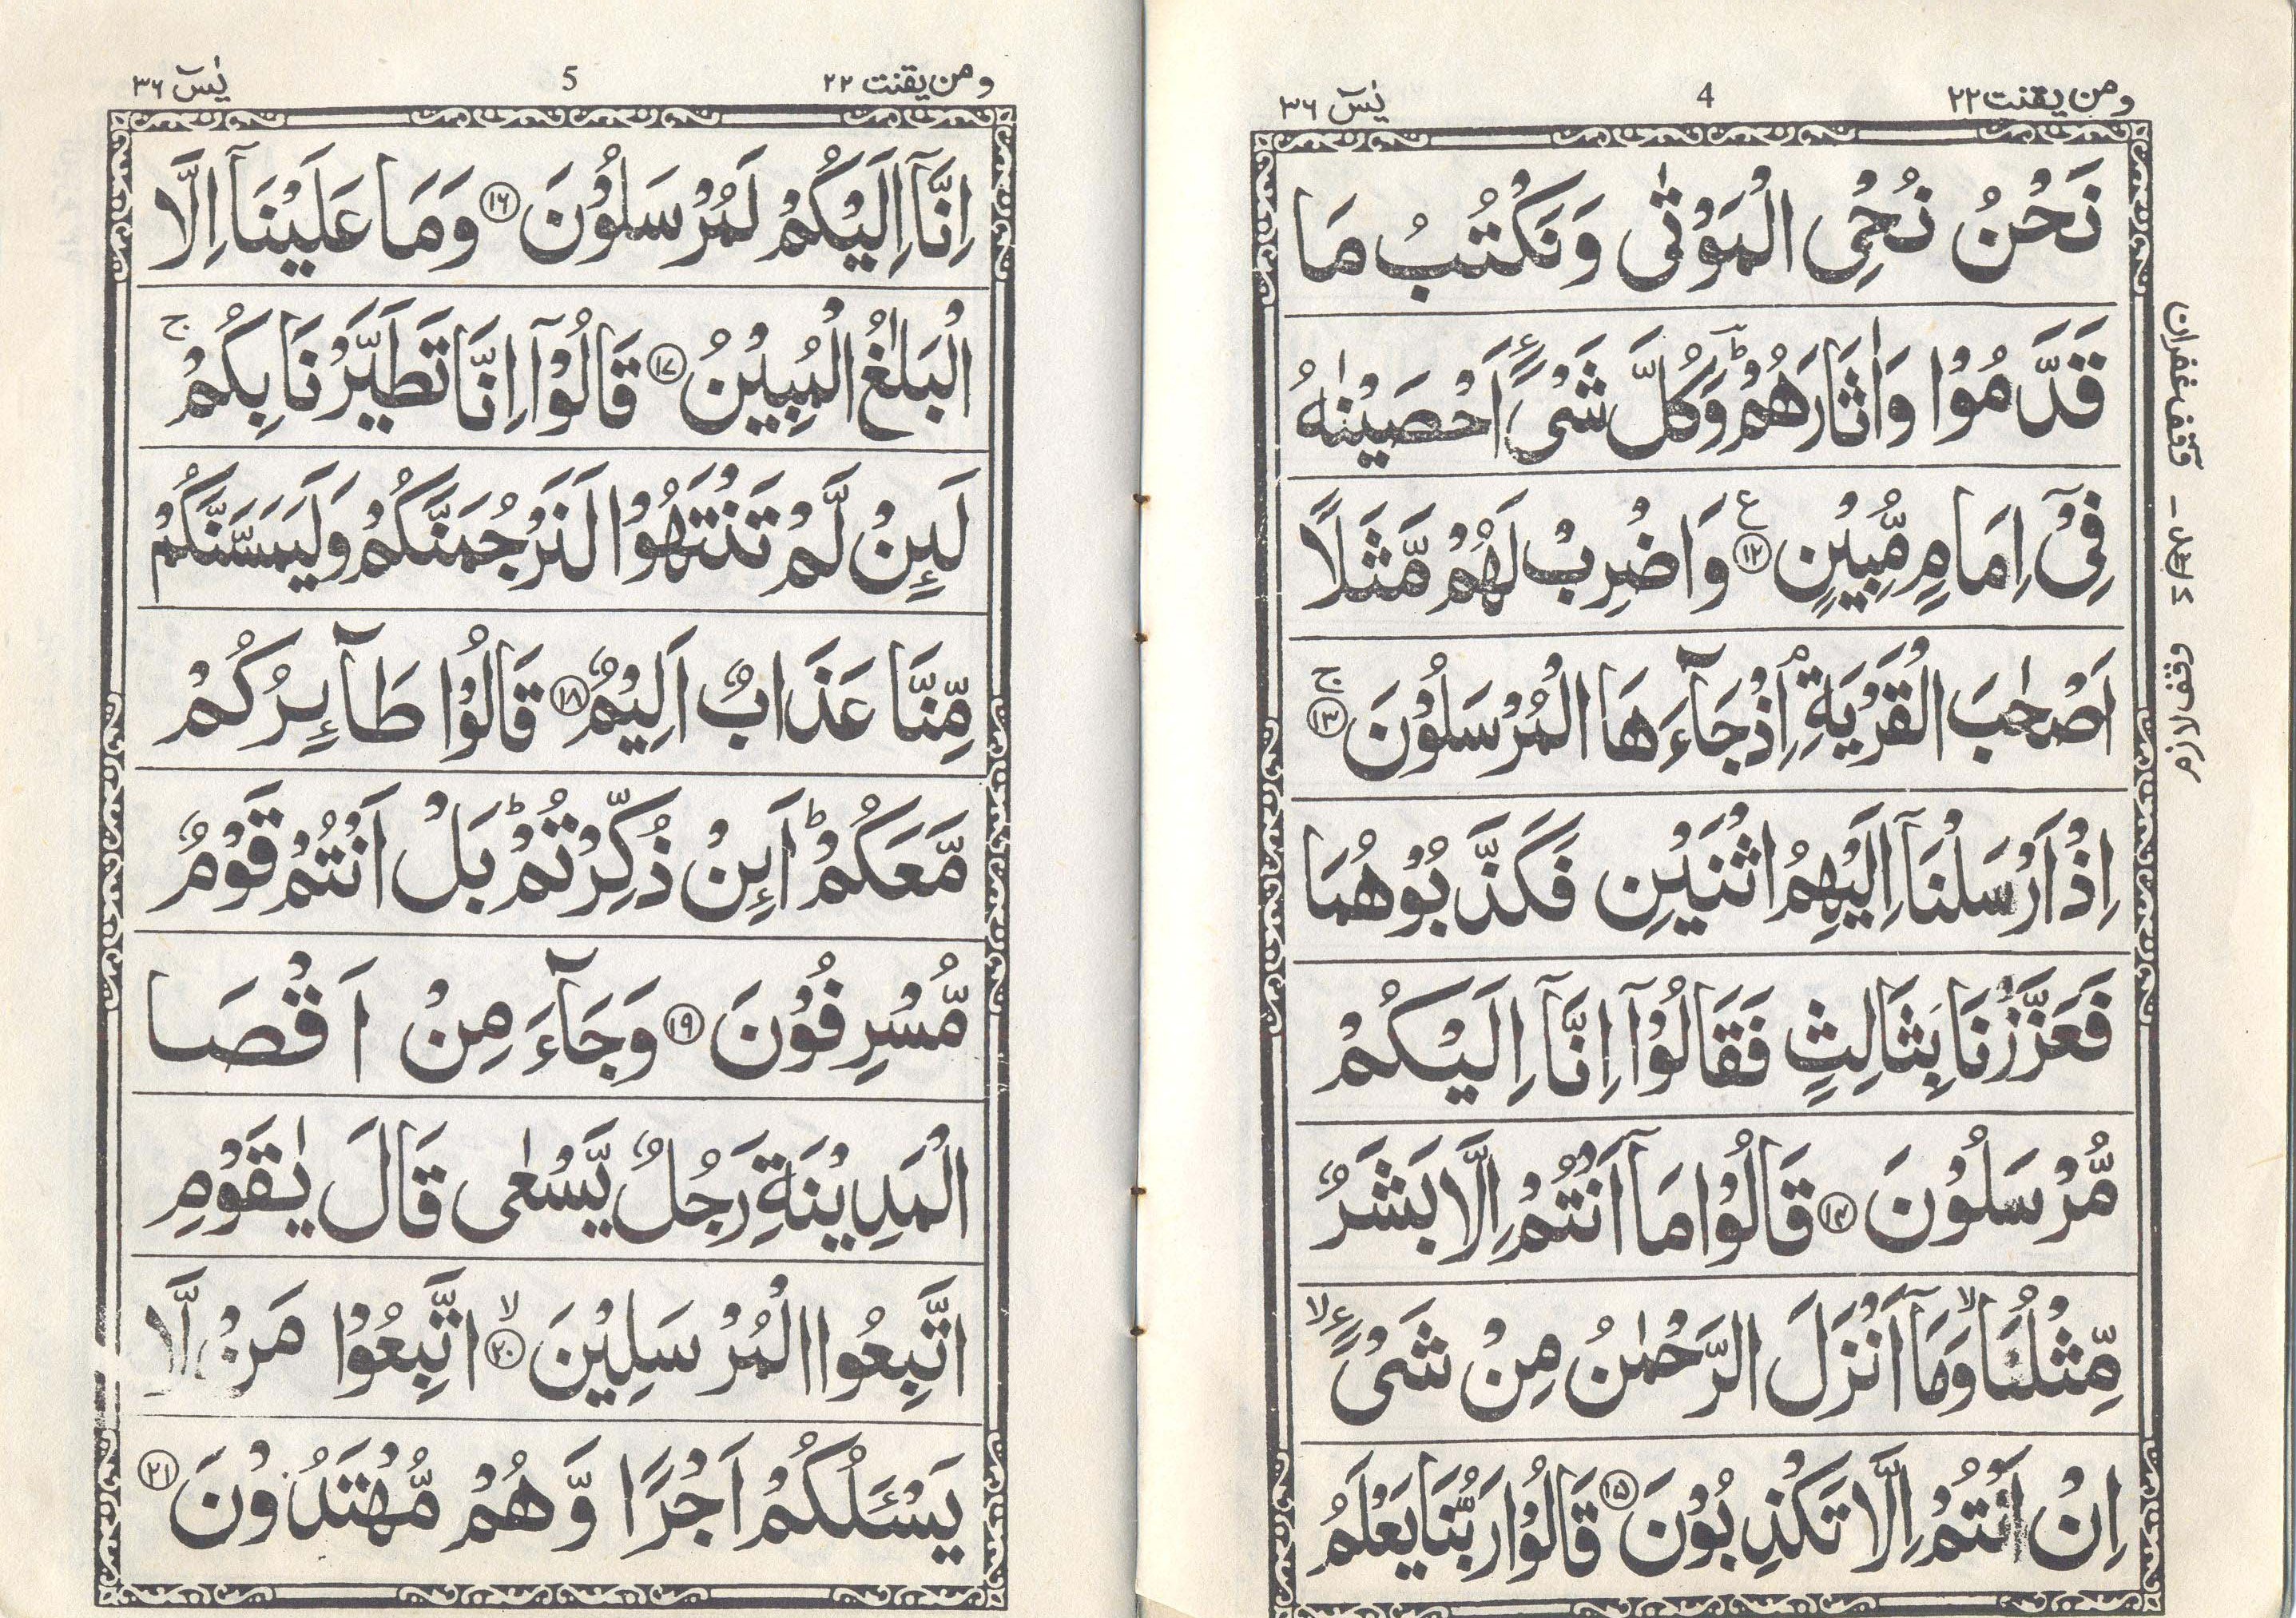 ومن يقنت ٢٢
4
يٰسٓ ٣٦
نَحْنُ نُحْيِ الْمَوْتٰى وَنَكْتُبُ مَا
قَدَّمُوْا وَاٰثَارَهُمْ ؕ وَكُلَّ شَیْءٍ اَحْصَيْنٰهُ
فِیْۤ اِمَامٍ مُّبِيْنٍ ﴿۱۲﴾ ع وَاضْرِبْ لَهُمْ مَّثَلًا
اَصْحٰبَ الْقَرْيَةِ ۘ اِذْ جَآءَهَا الْمُرْسَلُوْنَ ﴿۱۳﴾ ج
اِذْ اَرْسَلْنَاۤ اِلَيْهِمُ اثْنَيْنِ فَكَذَّبُوْهُمَا
فَعَزَّزْنَا بِثَالِثٍ فَقَالُوْۤا اِنَّاۤ اِلَيْكُمْ
مُّرْسَلُوْنَ ﴿۱۴﴾ قَالُوْا مَاۤ اَنْتُمْ اِلَّا بَشَرٌ
مِّثْلُنَا ۙ وَمَاۤ اَنْزَلَ الرَّحْمٰنُ مِنْ شَیْءٍ ۙ
اِنْ اَنْتُمْ اِلَّا تَكْذِبُوْنَ ﴿۱۵﴾ قَالُوْا رَبُّنَا يَعْلَمُ
وقف غفران
وقف لازم
ومن يقنت ٢٢
5
يٰسٓ ٣٦
اِنَّاۤ اِلَيْكُمْ لَمُرْسَلُوْنَ ﴿۱۶﴾ وَمَا عَلَيْنَاۤ اِلَّا
الْبَلٰغُ الْمُبِيْنُ ﴿۱۷﴾ قَالُوْۤا اِنَّا تَطَيَّرْنَا بِكُمْ ۚ
لَئِنْ لَّمْ تَنْتَهُوْا لَنَرْجُمَنَّكُمْ وَلَيَمَسَّنَّكُمْ
مِّنَّا عَذَابٌ اَلِيْمٌ ﴿۱۸﴾ قَالُوْا طَآئِرُكُمْ
مَّعَكُمْ ؕ اَئِنْ ذُكِّرْتُمْ ؕ بَلْ اَنْتُمْ قَوْمٌ
مُّسْرِفُوْنَ ﴿۱۹﴾ وَجَآءَ مِنْ اَقْصَا
الْمَدِيْنَةِ رَجُلٌ يَّسْعٰى قَالَ يٰقَوْمِ
اتَّبِعُوا الْمُرْسَلِيْنَ ﴿۲۰﴾ ۙ اتَّبِعُوْا مَنْ لَّا
يَسْـَٔلُكُمْ اَجْرًا وَّهُمْ مُّهْتَدُوْنَ ﴿۲۱﴾